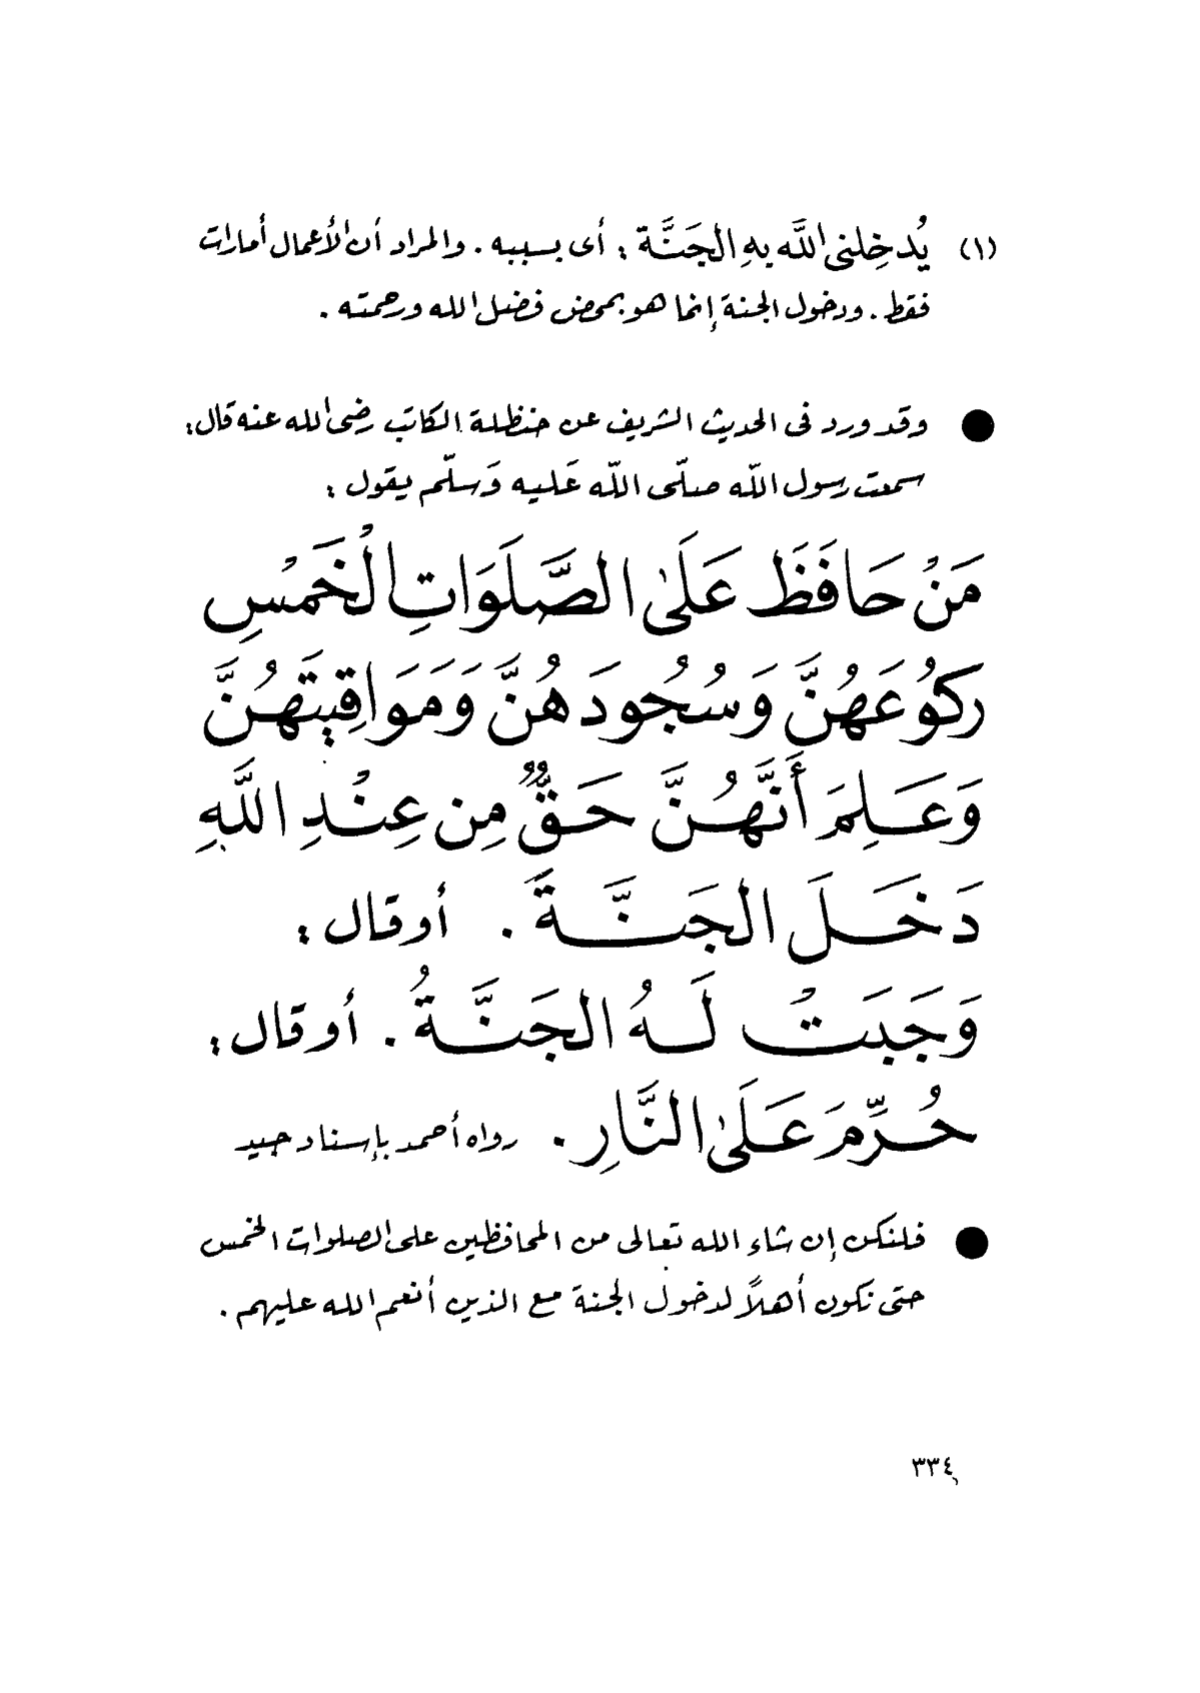 (١) يُدخِلنى اللَّه بهِ الجَنَّة : أى بسببه . والمراد أن الأعمال أمارات
فقط . ودخول الجنة إنما هو بمحض فضل الله ورحمته .
● وقد ورد فى الحديث الشريف عن حنظلة الكاتب رضى الله عنه قال :
سمعت رسول اللّه صلّى اللّه عَليه وَسلّم يقول :
مَنْ حَافَظَ عَلَىٰ الصَّلَوَاتِ الْخَمْسِ
رُكُوعَهُنَّ وَسُجُودَهُنَّ وَمَوَاقِيتَهُنَّ
وَعَلِمَ أَنَّهُنَّ حَقٌّ مِن عِنْدِ اللَّهِ
دَخَلَ الجَنَّةَ . أو قال :
وَجَبَتْ لَهُ الجَنَّةُ . أو قال :
حُرِّمَ عَلَىٰ النَّارِ . رواه أحمد بإسناد جيد
● فلنكن إن شاء الله تعالى من المحافظين على الصلوات الخمس
حتى نكون أهلاً لدخول الجنة مع الذين أنعم الله عليهم .
٣٣٤